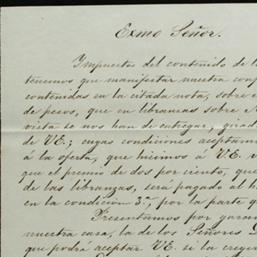 Exmo Señor.
Impuestos del contenido de l
tenemos que manifestar nuestra conf
contenidas en la citada nota, sobre
de pesos, que en libranzas sobre
vista se nos han de entregar, girad
de VE; cuyas condiciones aceptam
á la oferta, que hicimos á VE.
que el premio de dos por ciento, que
de las libranzas, será pagado al h
en la condicion 3ª, por la parte q
Presentamos por garan
nuestra casa, la de los Señores
que podrá aceptar VE. si la creyer